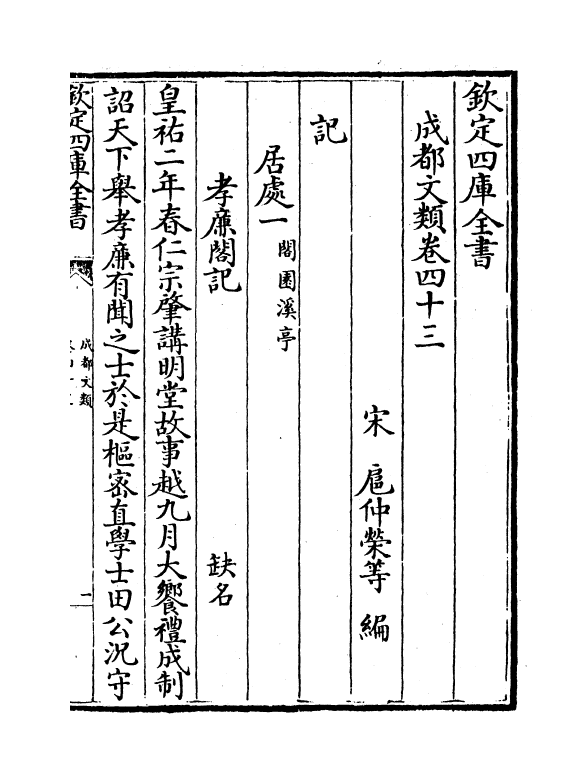 欽定四庫全書
成都文類卷四十三
宋 扈仲榮等 編
記
居處一 閣園溪亭
孝廉閣記 缺名
皇祐二年春仁宗肇講明堂故事越九月大饗禮成制
詔天下舉孝廉有聞之士於是樞密直學士田公況守
欽定四庫全書
成都文類